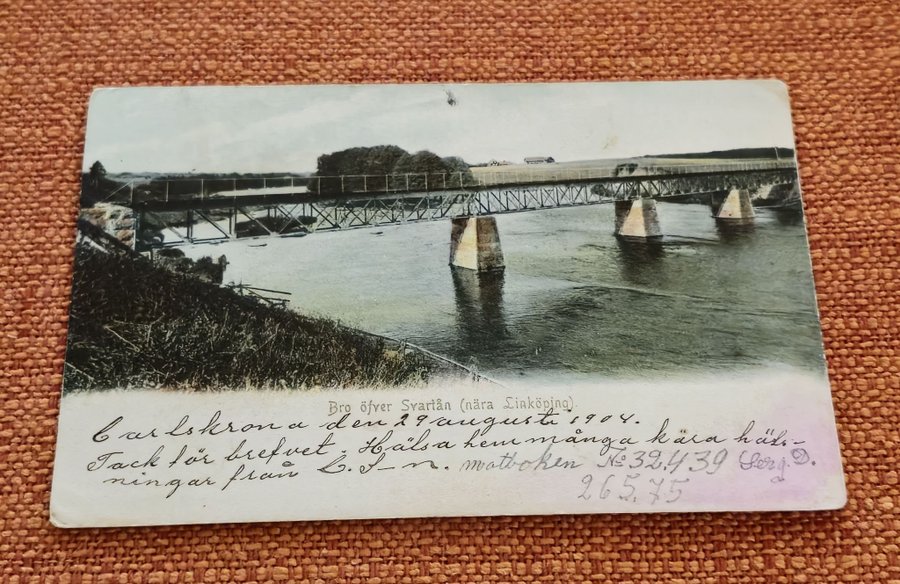 Bro öfver Svartån (nära Linköping).
Carlskrona den 29 augusti 1904.
Tack för brefvet. Hälsa hem många kära häls-
ningar från L. S-n. motboken № 32.439 Serg. D.
265.75